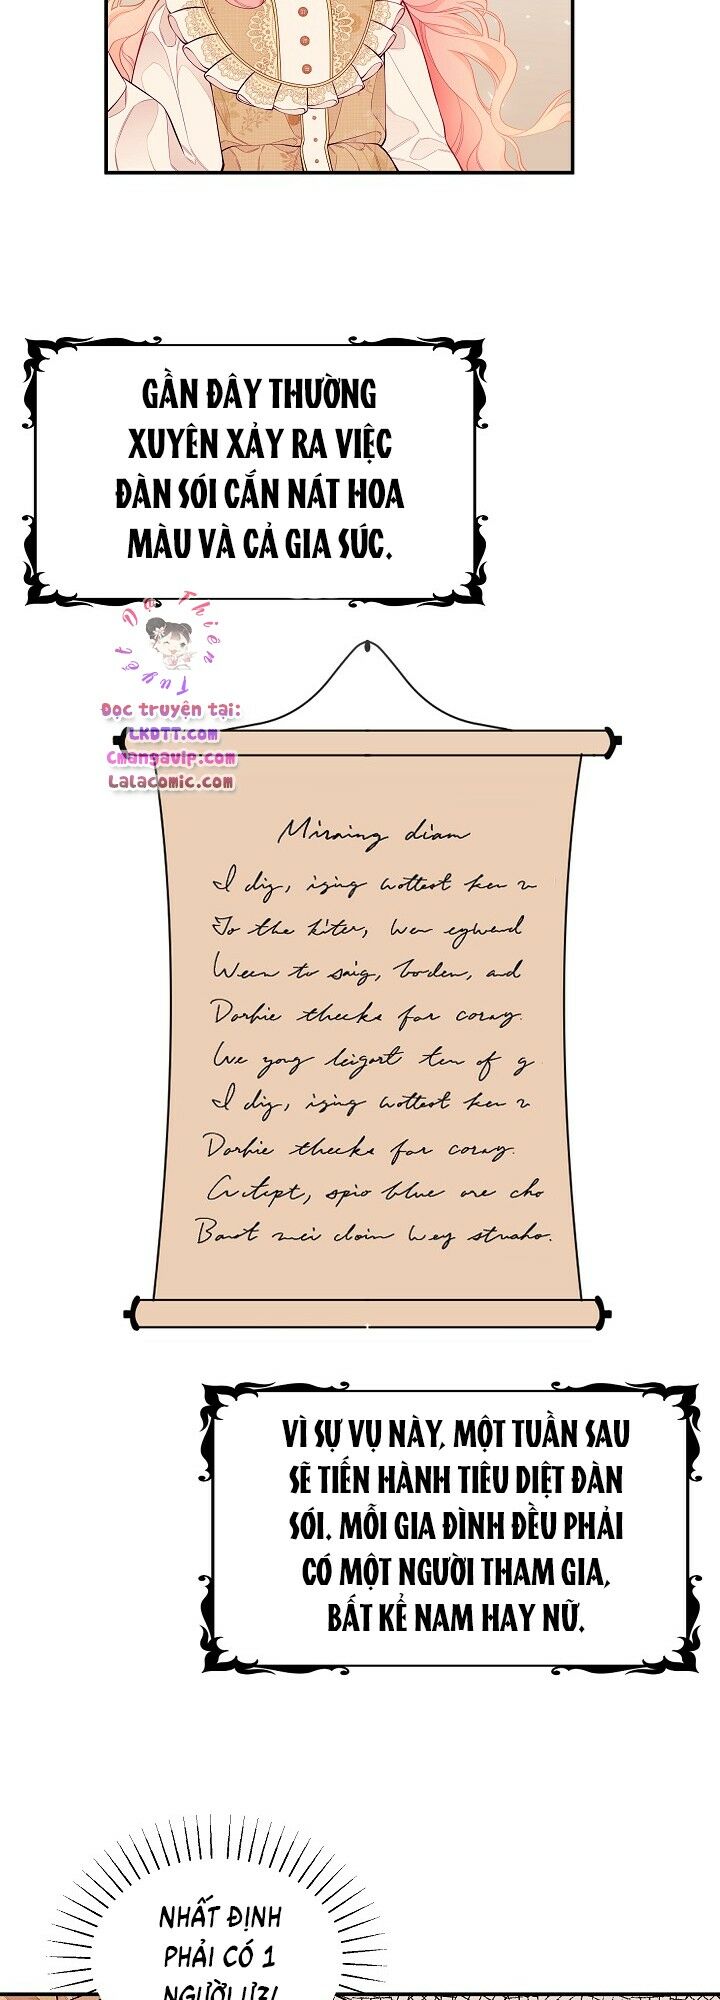 GẦN ĐÂY THƯỜNG
XUYÊN XẢY RA VIỆC
ĐÀN SÓI CẮN NÁT HOA
MÀU VÀ CẢ GIA SÚC.
Dạ Thiên Tuyết
Đọc truyện tại:
LKDTT.com
Cmangavip.com
Lalacomic.com
Miraing diam
I dig, ising wottest ken
To the kiter, Wen eyword
Ween to saig, boden, and
Dorhie thecks for coray.
We yong leigort ten of g
I dig, ising wottest ken
Dorhie thecks for coray.
spio blue ore cho
Baot mei cloin wey struaho.
VÌ SỰ VỤ NÀY, MỘT TUẦN SAU
SẼ TIẾN HÀNH TIÊU DIỆT ĐÀN
SÓI. MỖI GIA ĐÌNH ĐỀU PHẢI
CÓ MỘT NGƯỜI THAM GIA,
BẤT KỂ NAM HAY NỮ.
NHẤT ĐỊNH
PHẢI CÓ 1
NGƯỜI Ư?!